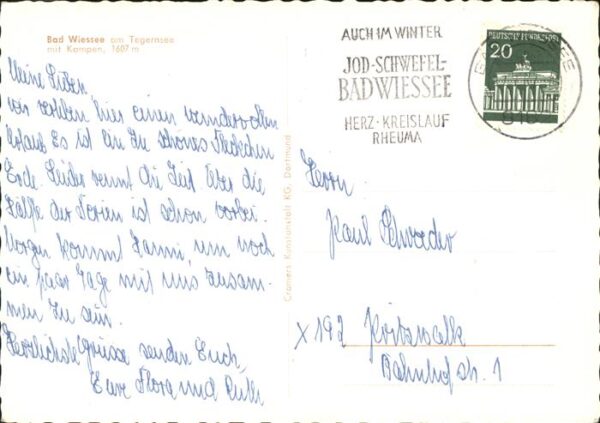 Bad Wiessee am Tegernsee
mit Kampen, 1607 m
Meine Lieben.
wir verleben hier einen wundervollen
Urlaub. Es ist ein zu schönes Fleckchen
Erde. Leider rennt die Zeit über die
Hälfte der Ferien ist schon vorbei.
Morgen kommt Hanni, um noch
ein paar Tage mit uns zusam-
men zu sein.
Herzlichste Grüsse senden Euch,
Eure Flora und Ruth
Cramers Kunstanstalt KG, Dortmund
AUCH IM WINTER
JOD-SCHWEFEL-
BAD WIESSEE
HERZ · KREISLAUF
RHEUMA
DEUTSCHE BUNDESPOST
20
Herrn
Paul Schroeder
X 192 Pritzwalk
Bahnhofstr. 1